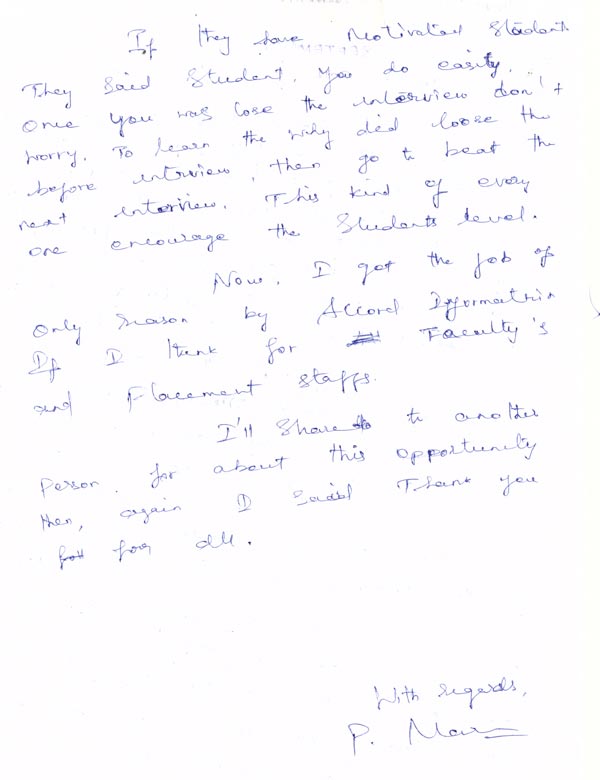 If they have Motivated Students
They said Student, you do easily.
Once you was lose the interview don't
worry. To learn the why did loose the
before interview, then go to beat the
next interview. This kind of every
one encourage the Students level.
Now, I got the job of
only reason by Accord Informatrix
If I thank for Faculty's
and Placement staffs.
I'll Share to another
Person, for about this opportunity
then, again I said Thank you
for all.
With regards,
P.